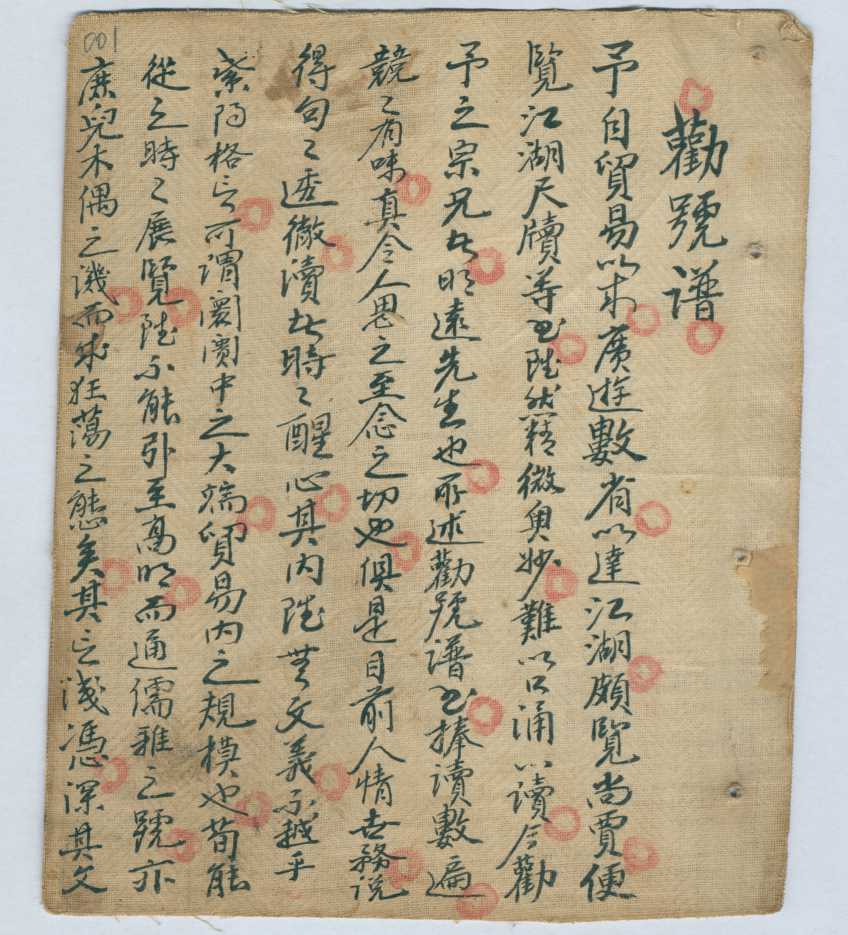 勸號譜
予自貿易以来廣遊數省以達江湖頗覽尚賈便
覽江湖尺牘等书陡然精微奧妙難以口涌以讀今勸
予之宗兄步明遠先生也所述勸號譜书捧讀數遍
競〻有味真令人思之至念之切也俱是目前人情世務説
得句〻透徹讀步時〻醒心其内陡無文義不越乎
紫阳格言可謂闤闠中之大端貿易内之規模也苟能
從之時〻展覽陡不能引至高明而通儒雅之號亦
庶免木偶之譏而求狂蕩之態矣其言淺馮深其文
001